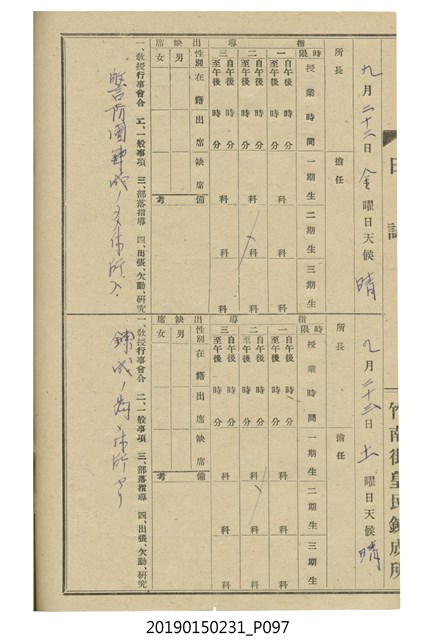 日誌
竹南街皇民鍊成所
九月二十二日 金曜日 天候 晴
所長 擔任
指導
時限 授業時間 一期生 二期生 三期生
一 自午後 時 分 至午後 時 分 科 科 科
二 自午後 時 分 至午後 時 分 科 科 科
三 自午後 時 分 至午後 時 分 科 科 科
出缺席
性別 在籍 出席 缺席 備考
男
女
一、教授行事會合 二、一般事項 三、部落指導 四、出張、欠勤、研究
警防團鍊成ノ
九月二十三日 土曜日 天候 晴
所長 擔任
指導
時限 授業時間 一期生 二期生 三期生
一 自午後 時 分 至午後 時 分 科 科 科
二 自午後 時 分 至午後 時 分 科 科 科
三 自午後 時 分 至午後 時 分 科 科 科
出缺席
性別 在籍 出席 缺席 備考
男
女
一、教授行事會合 二、一般事項 三、部落指導 四、出張、欠勤、研究
鍊成ノ為
20190150231_P097